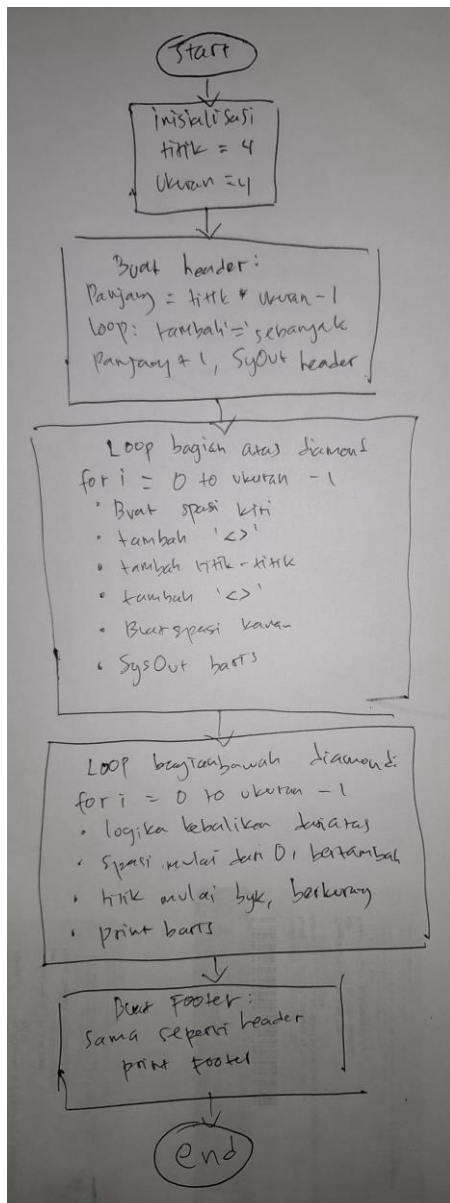 Start
inisialisasi
titik = 4
Ukuran = 4
Buat header:
Panjang = titik * ukuran - 1
loop: tambah '=' sebanyak
Panjang + 1, SyOut header
Loop bagian atas diamond
for i = 0 to ukuran - 1
• Buat spasi kiri
• tambah '<>'
• tambah titik-titik
• tambah '<>'
• Buat spasi kanan
• SysOut baris
Loop bagian bawah diamond:
for i = 0 to ukuran - 1
• logika kebalikan dari atas
• spasi mulai dari 0, bertambah
• titik mulai byk, berkurang
• print baris
Buat Footer:
Sama seperti header
print Footer
end